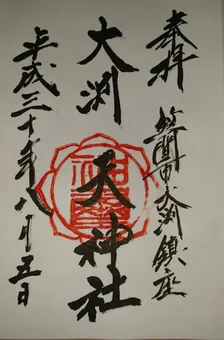 奉拝
笠間市大渕鎮座
大渕天神社
平成三十年八月五日